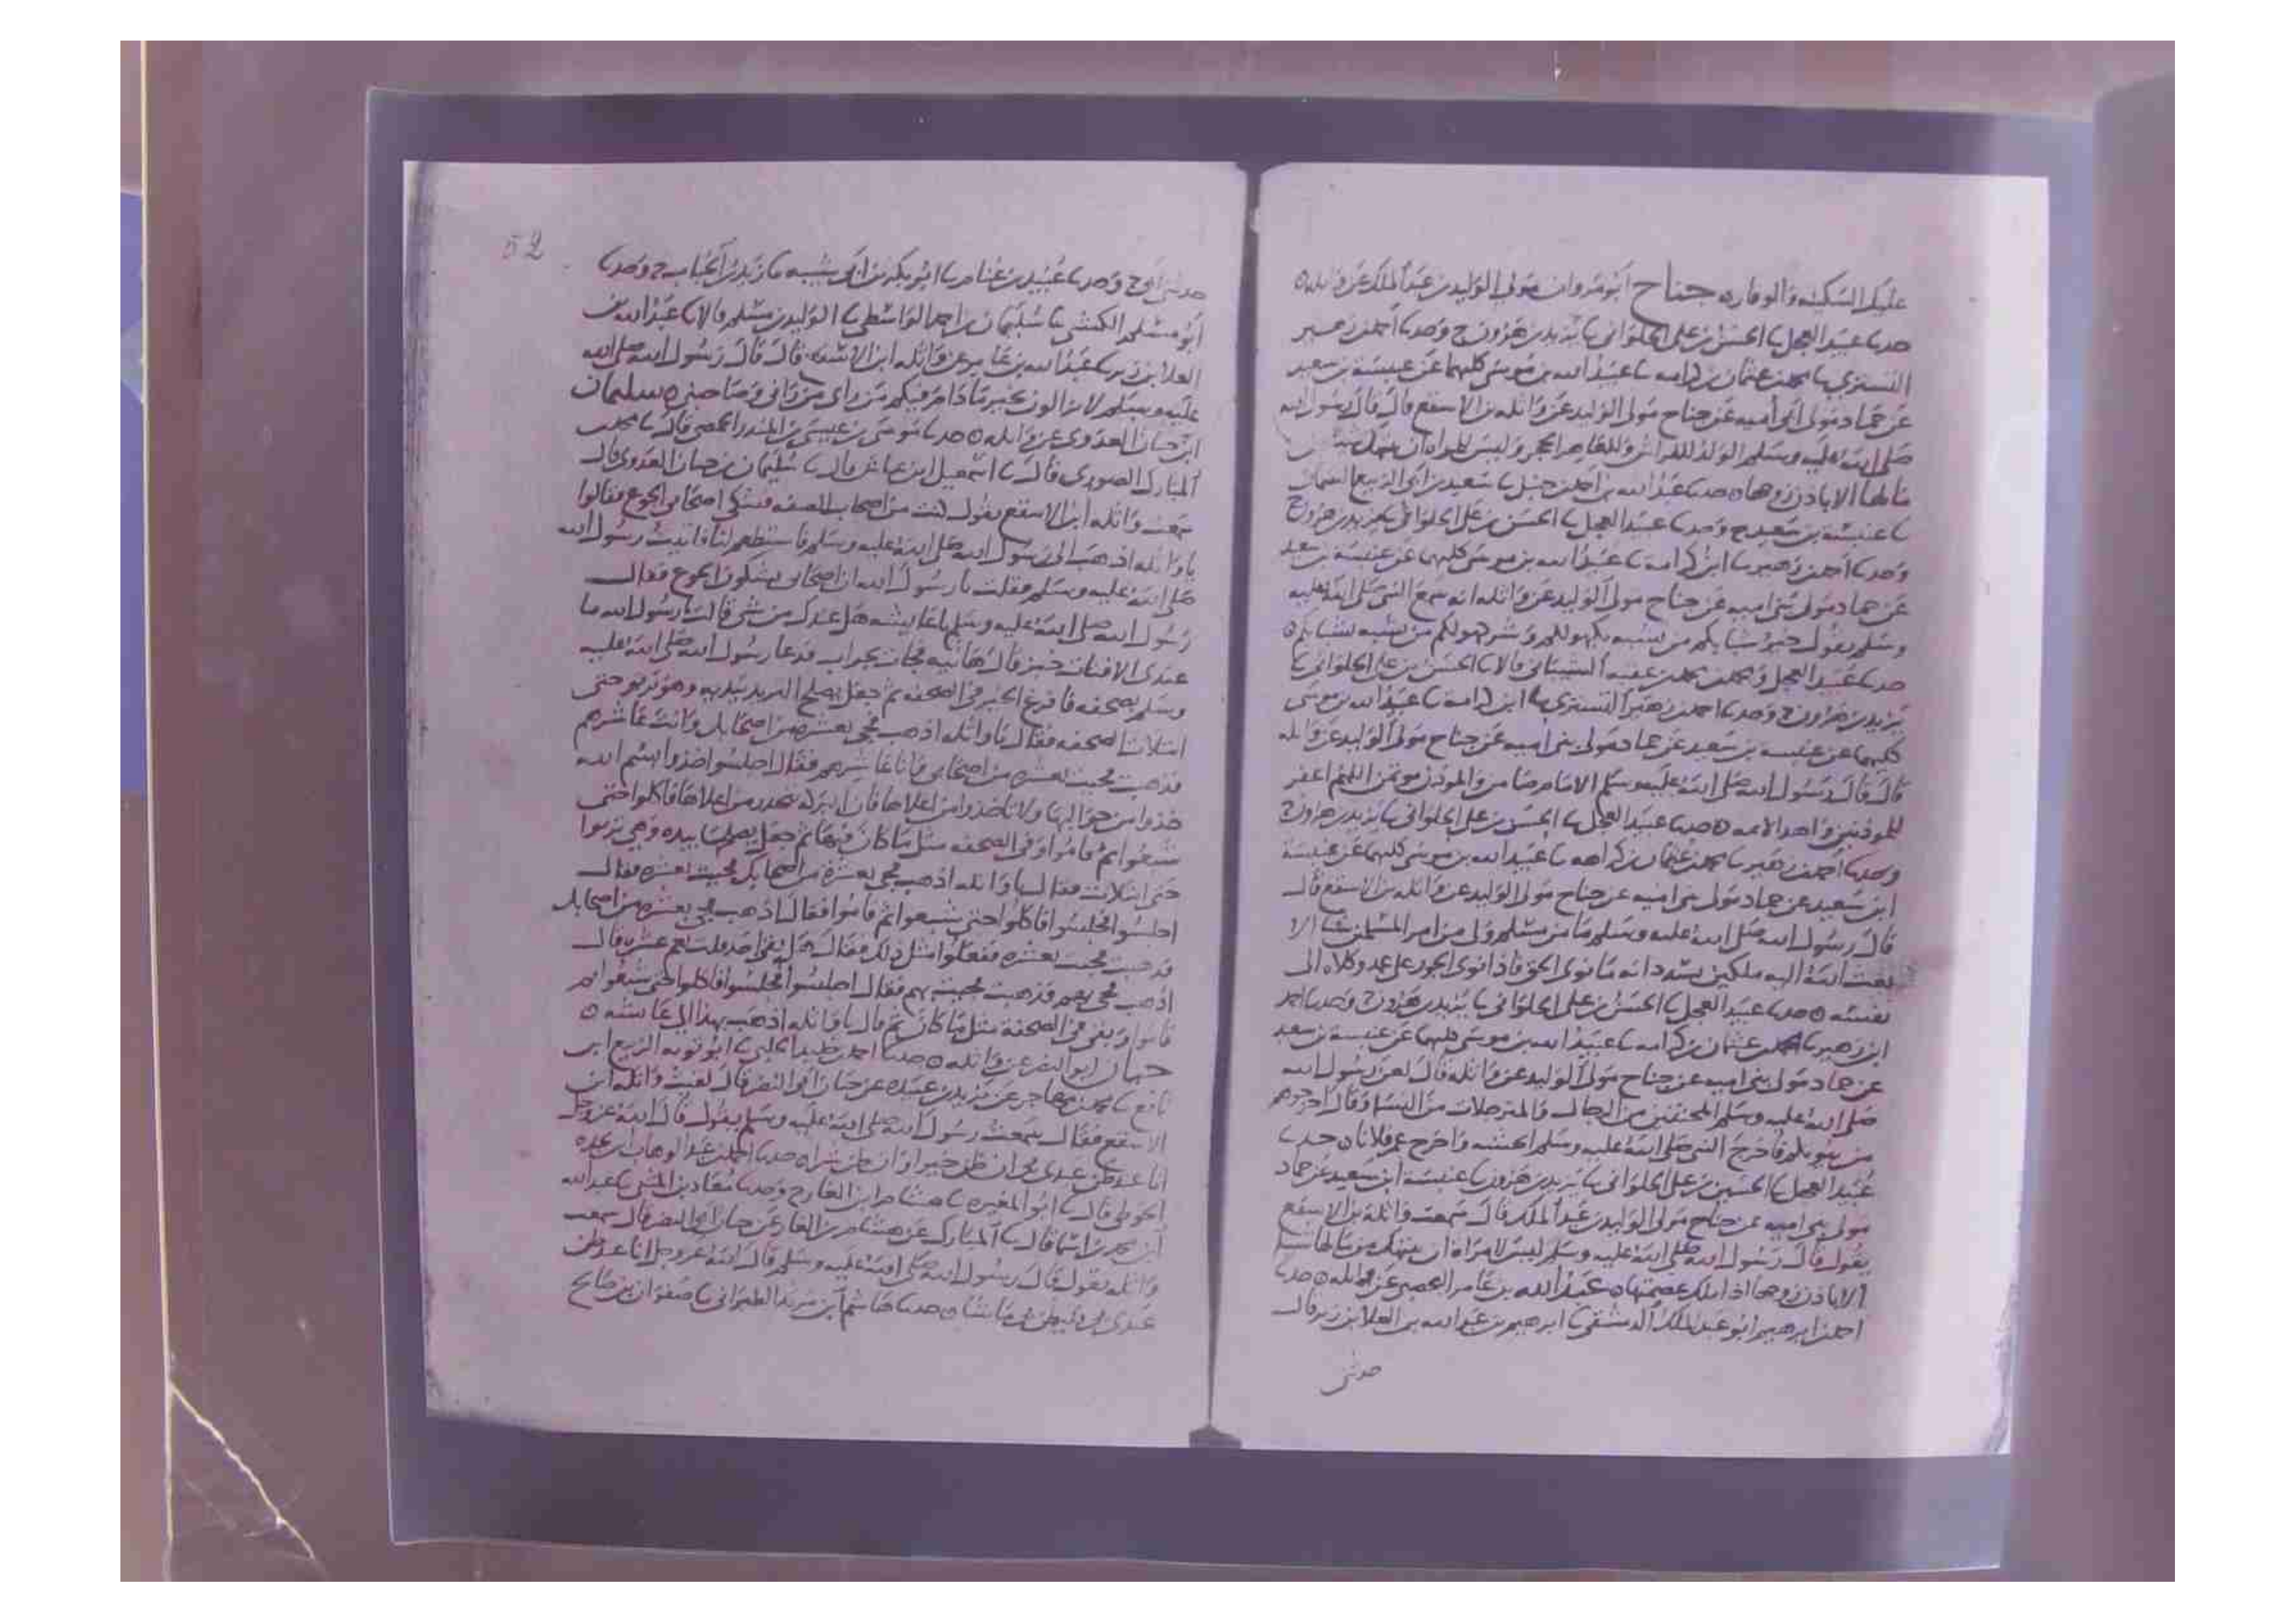 عليكم السكينه والوقاره جناح ابو مروان مولى الوليد بن عبد الملك عن واثله ه
حدىا عبيد العجل ىا الحسن بن على الحلوانى ىا يزيد بن هرون ح وحدىا احمد بن زهير
التسترى ىا محمد بن عثمان بن كرامه ىا عبيد الله بن موسى كليهما عن عنبسة بن سعيد
عن حماد مولى بنى أميه عن جناح مولى الوليد عن واثله بن الاسقع قال قال رسول الله
صلى الله عليه وسلم الولد للفراش وللعاهر الحجر وليس للمراه ان
مالها الا باذن زوجها ه حدىا عبد الله بن احمد بن حنبل ىا سعيد بن ابى الربيع السمان
ىا عنبسه بن سعيد ح وحدىا عبيد العجل ىا الحسن بن على الحلوانى ىا يزيد بن هرون ح
وحدىا احمد بن زهير ىا ابن كرامه ىا عبيد الله بن موسى كليهما عن عنبسة بن سعيد
عن حماد مولى بنى اميه عن جناح مولى الوليد عن واثله انه سمع النبى صلى الله عليه
وسلم يقول خير شبابكم من تشبه بكهولكم وشر كهولكم من تشبه بشبابكم ه
حدىا عبيد العجل ومحمد بن محمد بن عقبه الشيبانى قالا ىا الحسن بن على الحلوانى ىا
يزيد بن هرون ح وحدىا احمد بن زهير التسترى ىا ابن كرامه ىا عبيد الله بن موسى
كليهما عن عنبسه بن سعيد عن حماد مولى بنى اميه عن جناح مولى الوليد عن واثله
قال قال رسول الله صلى الله عليه وسلم الامام ضامن والموذن موتمن اللهم اغفر
للموذنين واهد الايمه ه حدىا عبيد العجل ىا الحسن بن على الحلوانى ىا يزيد بن هرون ح
وحدىا احمد بن زهير ىا محمد بن عثمان بن كرامه ىا عبيد الله بن موسى كليهما عن عنبسة
ابن سعيد عن حماد مولى بنى اميه عن جناح مولى الوليد عن واثله بن الاسقع قال
قال رسول الله صلى الله عليه وسلم ما من مسلم ولى من امر المسلمين شيا الا
بعث الله اليه ملكين يسددانه ما نوى الحق فاذا نوى الجور على عمد وكلاه الى
نفسه ه حدىا عبيد العجل ىا الحسن بن على الحلوانى ىا يزيد بن هرون ح وحدىا احمد
ابن زهير ىا محمد بن عثمان بن كرامه ىا عبيد الله بن موسى كليهما عن عنبسة بن سعيد
عن حماد مولى بنى اميه عن جناح مولى الوليد عن واثله قال لعن رسول الله
صلى الله عليه وسلم المخنثين من الرجال والمترجلات من النسا وقال اخرجوهم
من بيوتكم فاخرج النبى صلى الله عليه وسلم واخرج عمر فلانا ه حدىا
عبيد العجل ىا الحسين بن على الحلوانى ىا يزيد بن هرون ىا عنبسة ابن سعيد عن حماد
مولى بنى اميه عن جناح مولى الوليد بن عبد الملك قال سمعت واثلة بن الاسقع
يقول قال رسول الله صلى الله عليه وسلم ليس لامراة ان تنتهك من مالها شيا
الا باذن زوجها اذا ملك عصمتها ه عبد الله بن عامر اليحصبى عن واثله ه حدىا
احمد بن ابرهيم ابو عبد الملك الدمشقى ىا ابرهيم بن عبد الله بن العلا بن زبر قال
حدثنى
52
حدثنى ابى ح وحدىا عبيد بن غنام ىا ابو بكر بن ابى شيبه ىا زيد بن الحباب ح وحدىا
ابو مسلم الكشى ىا سليمان بن احمد الواسطى ىا الوليد بن مسلم قالا ىا عبد الله بن
العلا بن زبر ىا عبد الله بن عامر عن واثله ابن الاسقع قال قال رسول الله صلى الله
عليه وسلم لا تزالون بخير ما دام فيكم من راى من رانى وصاحبنى ه سليمان
ابن حيان العدوى عن واثله ه حدىا موسى بن عيسى بن المنذر الحمصى قال ىا محمد بن
المبارك الصورى قال ىا اسمعيل ابن عياش قال ىا سليمان بن حيان العدوى قال
سمعت واثله ابن الاسقع يقول كنت من اصحاب الصفه فشكى اصحابى الجوع فقالوا
يا واثله اذهب الى رسول الله صلى الله عليه وسلم فاستطعم لنا فاتيت رسول الله
صلى الله عليه وسلم فقلت يا رسول الله ان اصحابى يشكون الجوع فقال
رسول الله صلى الله عليه وسلم يا عايشه هل عندك من شى قالت يا رسول الله ما
عندى الا فتات خبز قال هاتيه فجات بجراب فدعا رسول الله صلى الله عليه
وسلم بصحفه فافرغ الخبز فى الصحفه ثم جعل يصلح الثريد بيديه وهو يربو حتى
امتلات الصحفه فقال يا واثله اذهب فجى بعشره من اصحابك وانت عاشرهم
فذهبت فجيت بعشره من اصحابى فانا عاشرهم فقال اجلسوا خذوا بسم الله
خذوا من حواليها ولا تاخذوا من اعلاها فان البركه تحدر من اعلاها فاكلوا حتى
شبعوا ثم قاموا وفى الصحفه مثل ما كان فيها ثم جعل يصلحها بيده وهى تربوا
حتى امتلات فقال يا واثله اذهب فجى بعشرة من اصحابك فجيت بعشره فقال
اجلسوا فجلسوا فاكلوا حتى شبعوا ثم قاموا فقال اذهب فجى بعشره من اصحابك
فذهبت فجيت بعشره ففعلوا مثل ذلك فقال هل بقى احد قلت نعم عشره قال
اذهب فجى بهم فذهبت فجيت بهم فقال اجلسوا فجلسوا فاكلوا حتى شبعوا ثم
قاموا وبقى فى الصحفة مثل ما كان ثم قال يا واثله اذهب بهذا الى عايشه ه
حيان ابو النضر عن واثله ه حدىا احمد بن خليد الحلبى ىا ابو توبه الربيع ابن
نافع ىا محمد بن مهاجر عن يزيد بن عبيده عن حيان ابى النضر قال لقيت واثله ابن
الاسقع فقال سمعت رسول الله صلى الله عليه وسلم يقول قال الله عز وجل
انا عند ظن عبدى بى ان ظن خيرا وان ظن شرا ه حدىا احمد بن عبد الوهاب بن نجده
الحوطى قال ىا ابو المغيره ىا هشام ابن الغاز ح وحدىا معاذ بن المثنى ىا عبد الله
ابن محمد بن اسما قال ىا المبارك عن هشام بن الغاز عن حيان ابى النضر قال سمعت
واثله يقول قال رسول الله صلى الله عليه وسلم قال الله عز وجل انا عند ظن
عبدى بى فليظن بى ما شا ه حدىا هاشم ابن مرثد الطبرانى ىا صفوان بن صالح